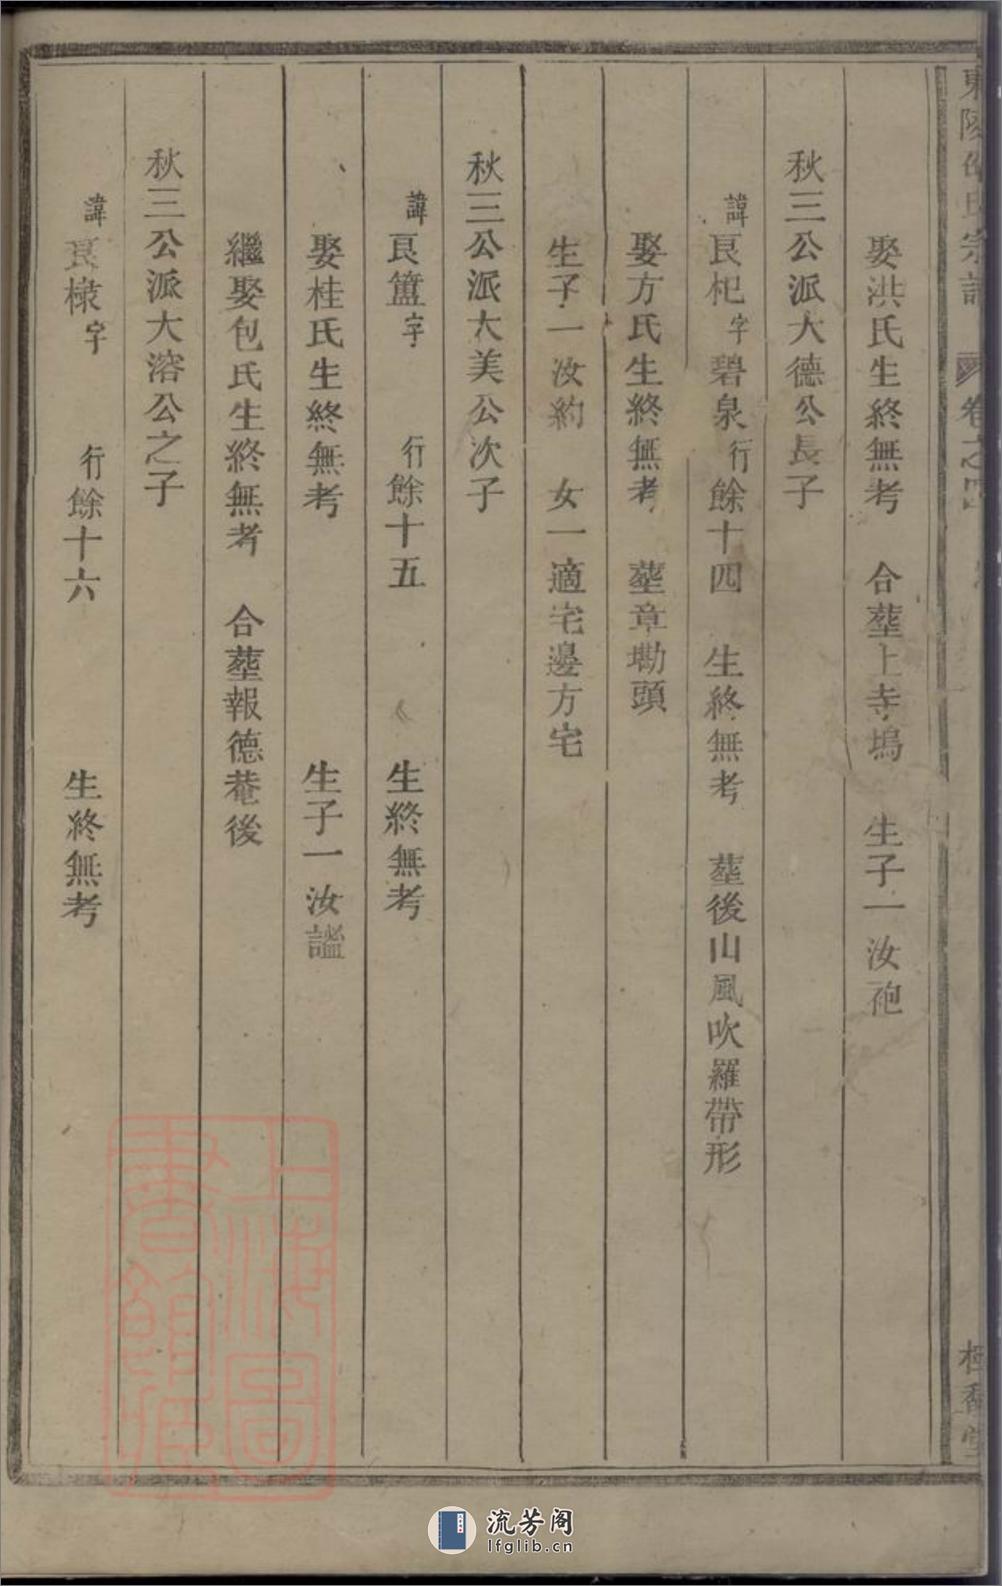 東陵邵氏宗譜 卷之
娶洪氏生終無考 合塟上寺塢 生子一汝袍
秋三公派大德公長子
諱艮杞字碧泉行餘十四 生終無考 塟後山風吹羅帶形
娶方氏生終無考 塟章勘頭
生子一汝約 女一適宅邊方宅
秋三公派大美公次子
諱艮簠字 行餘十五 生終無考
娶桂氏生終無考 生子一汝謐
繼娶包氏生終無考 合塟報德菴後
秋三公派大溶公之子
諱艮棣字 行餘十六 生終無考
桂香堂
上海圖書館藏
流芳阁
lfglib.cn